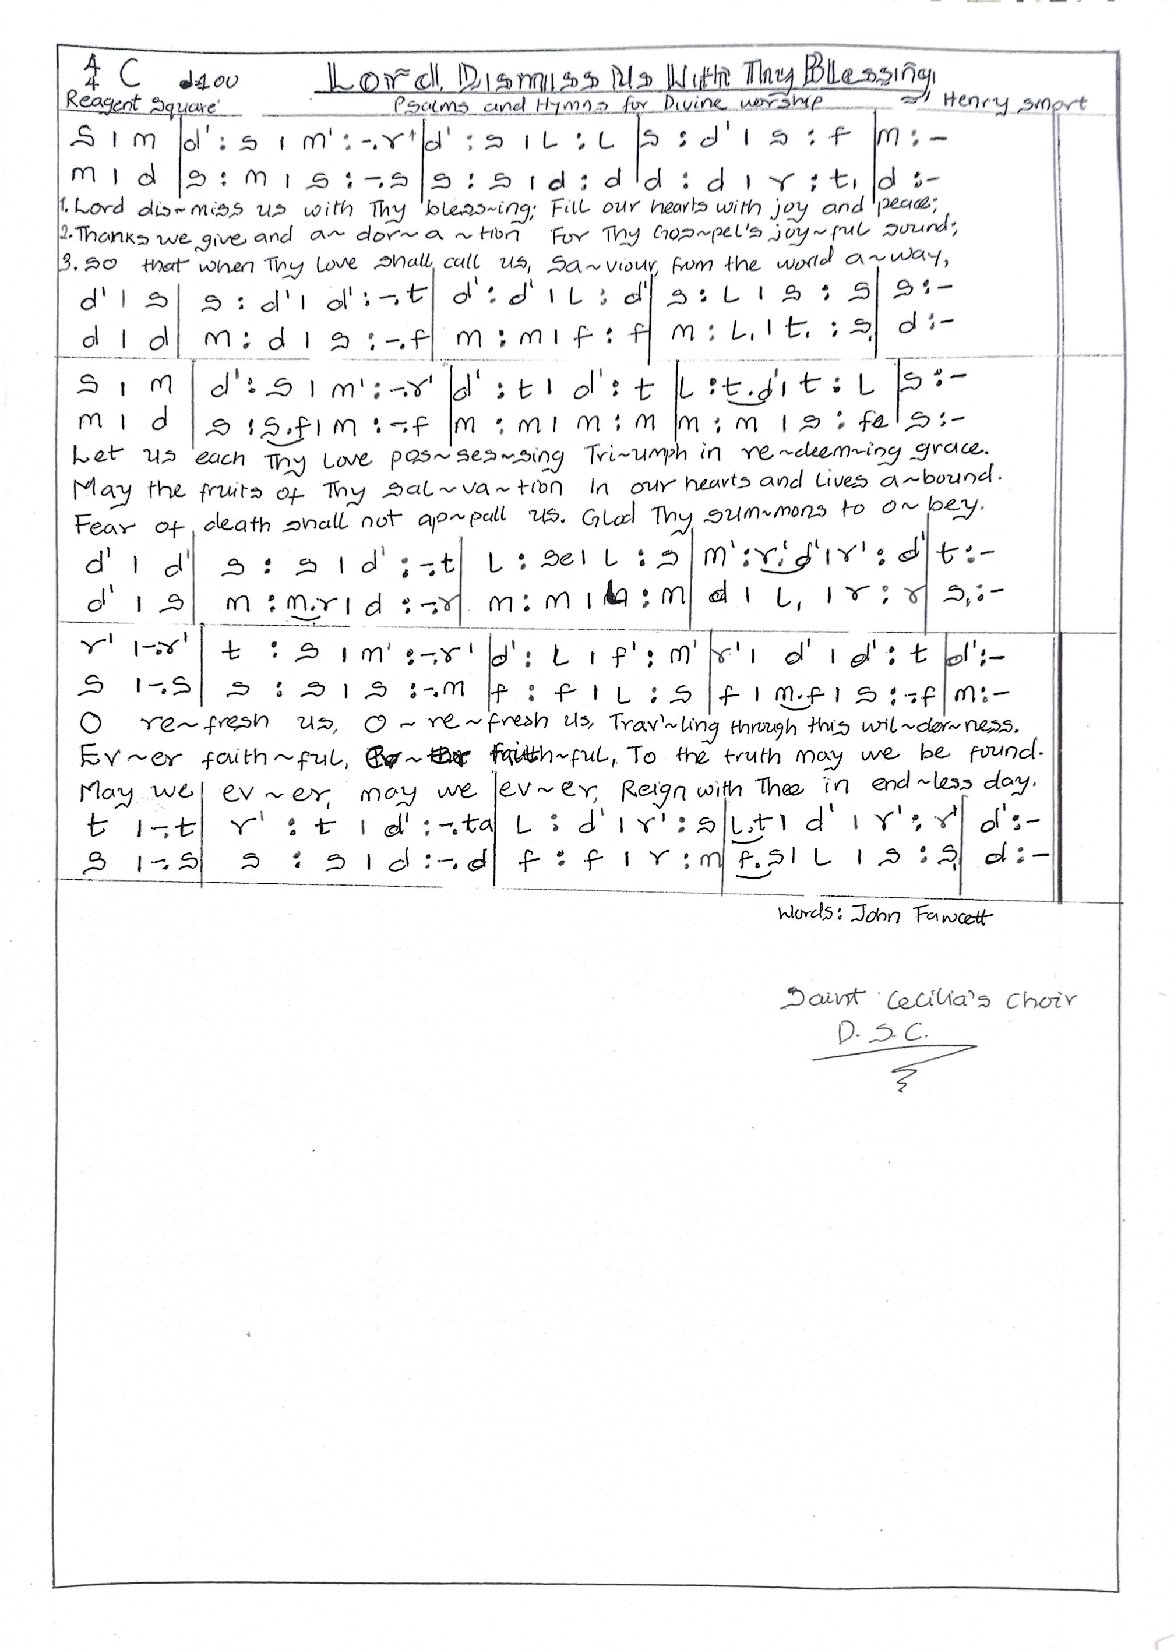 4/4 C d=100 Lord, Dismiss Us With Thy Blessing,
Reagent Square' Psalms and Hymns for Divine worship Henry smart
s | m |d' : s | m' : -.r' |d' : s | L : L |s : d' | s : f |m : -
m | d |s : m | s : -.s |s : s | d : d |d : d | r : t, |d : -
1. Lord dis~miss us with Thy bless~ing; Fill our hearts with joy and peace;
2. Thanks we give and a~ dor~a ~ tion For Thy Gos~pel's joy~ful sound;
3. so that when Thy Love shall call us, Sa~viour, from the world a~way,
d' | s |s : d' | d' : -.t |d' : d' | L : d' |s : L | s : s |s : -
d | d |m : d | s : -.f |m : m | f : f |m : L, | t, : s, |d : -
s | m |d' : s | m' : -.r' |d' : t | d' : t |L : t.d' | t : L |s : -
m | d |s : s.f | m : -.f |m : m | m : m |m : m | s : fe |s : -
Let us each Thy Love pos~ses~sing Tri~umph in re~deem~ing grace.
May the fruits of Thy sal~va~tion In our hearts and Lives a~bound.
Fear of death shall not ap~pall us. Glad Thy sum~mons to o~bey.
d' | d' |s : s | d' : -.t |L : se | L : s |m' : r'.d' | r' : d' |t : -
d' | s |m : m.r | d : -.r |m : m | : m |d | L, | r : r |s, : -
r' | -.r' |t : s | m' : -.r' |d' : L | f' : m' |r' | d' | d' : t |d' : -
s | -.s |s : s | s : -.m |f : f | L : s |f | m.f | s : -.f |m : -
O re~fresh us, O ~ re~fresh us, Trav'~ling through this wil~der~ness.
Ev~er faith~ful, faith~ful, To the truth may we be found.
May we ev~er, may we ev~er, Reign with Thee in end~less day.
t | -.t |r' : t | d' : -.ta |L : d' | r' : s |L.t | d' | r' : r' |d' : -
s | -.s |s : s | d : -.d |f : f | r : m |f.s | L | s : s, |d : -
Words: John Fawcett
Saint Cecilia's Choir
D. S. C.